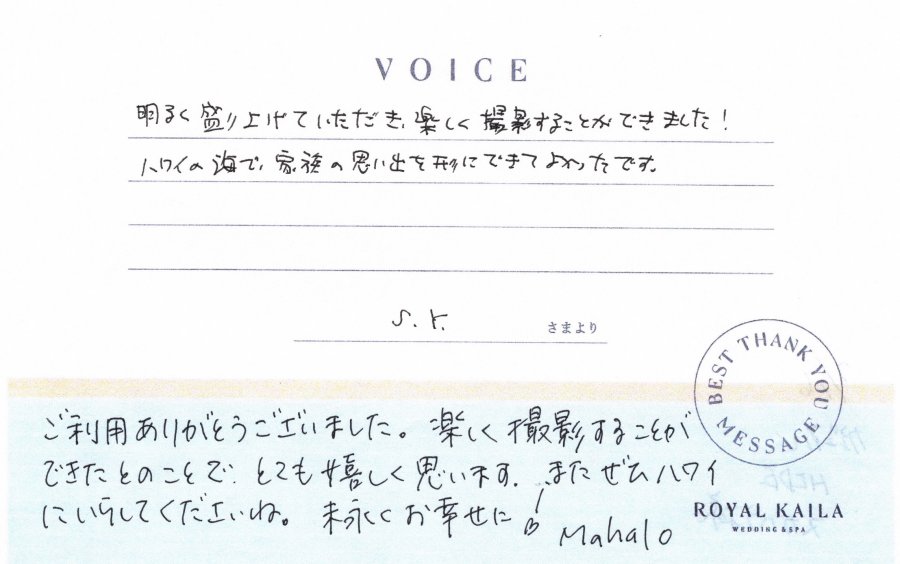 VOICE
明るく盛り上げていただき、楽しく撮影することができました！
ハワイの海で、家族の思い出を形にできてよかったです。
S.Y. さまより
BEST THANK YOU MESSAGE
ご利用ありがとうございました。楽しく撮影することが
できたとのことで、とても嬉しく思います。またぜひハワイ
にいらしてくださいね。末永くお幸せに！
Mahalo
ROYAL KAILA
WEDDING & SPA